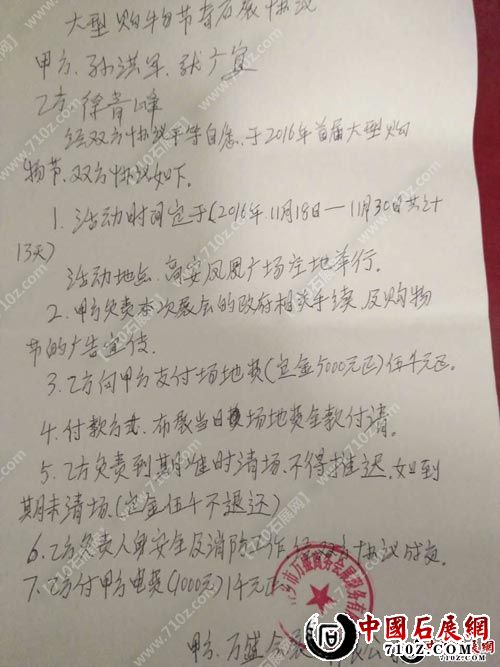 大型购物节奇石展协议
甲方、孙洪军、张广宜
乙方 徐青峰
经双方协议平等自愿、于2016年首届大型购
物节、双方协议如下。
1、活动时间定于(2016年11月18日—11月30日共计
13天)
活动地点、高安凤凰广场空地举行。
2、甲方负责本次展会的政府相关手续、及购物
节的广告宣传。
3、乙方向甲方支付场地费(定金5000元正)伍千元正。
4、付款方式、布展当日 场地费全款付清。
5、乙方负责到期准时清场、不得推迟、如到
期未清场、(定金伍千不退还)
6、乙方负责人身安全及消防工作 双方协议
7、乙方付甲方电费(1000元)1千元正
市万盛商务会展服务有
甲方、万盛会
中國石展網
7102.COM
www.710z.com
710z石展网